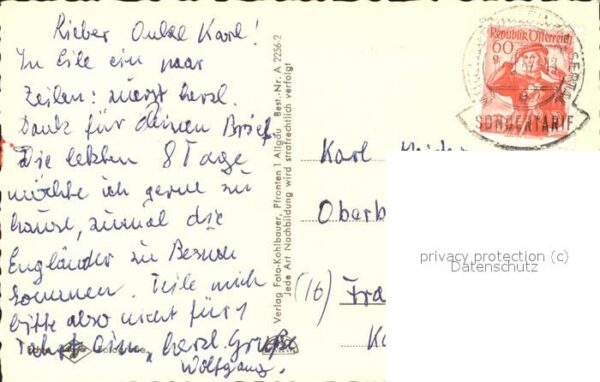 Lieber Onkel Karl!
In Eile ein paar
Zeilen: zuerst herzl.
Dank für deinen Brief.
Die letzten 8 Tage
möchte ich gerne zu
hause, zumal die
Engländer zu Besuch
kommen. Teile mich
bitte also nicht für 1
ein, herzl. Grüße
Wolfgang.
Verlag Foto-Kohlbauer, Pfronten / Allgäu Best.-Nr. A 2256/2
Jede Art Nachbildung wird strafrechtlich verfolgt
Republik Österreich
60
SONDERTARIF
Karl
Oberb
(16) Fra
privacy protection (c)
Datenschutz